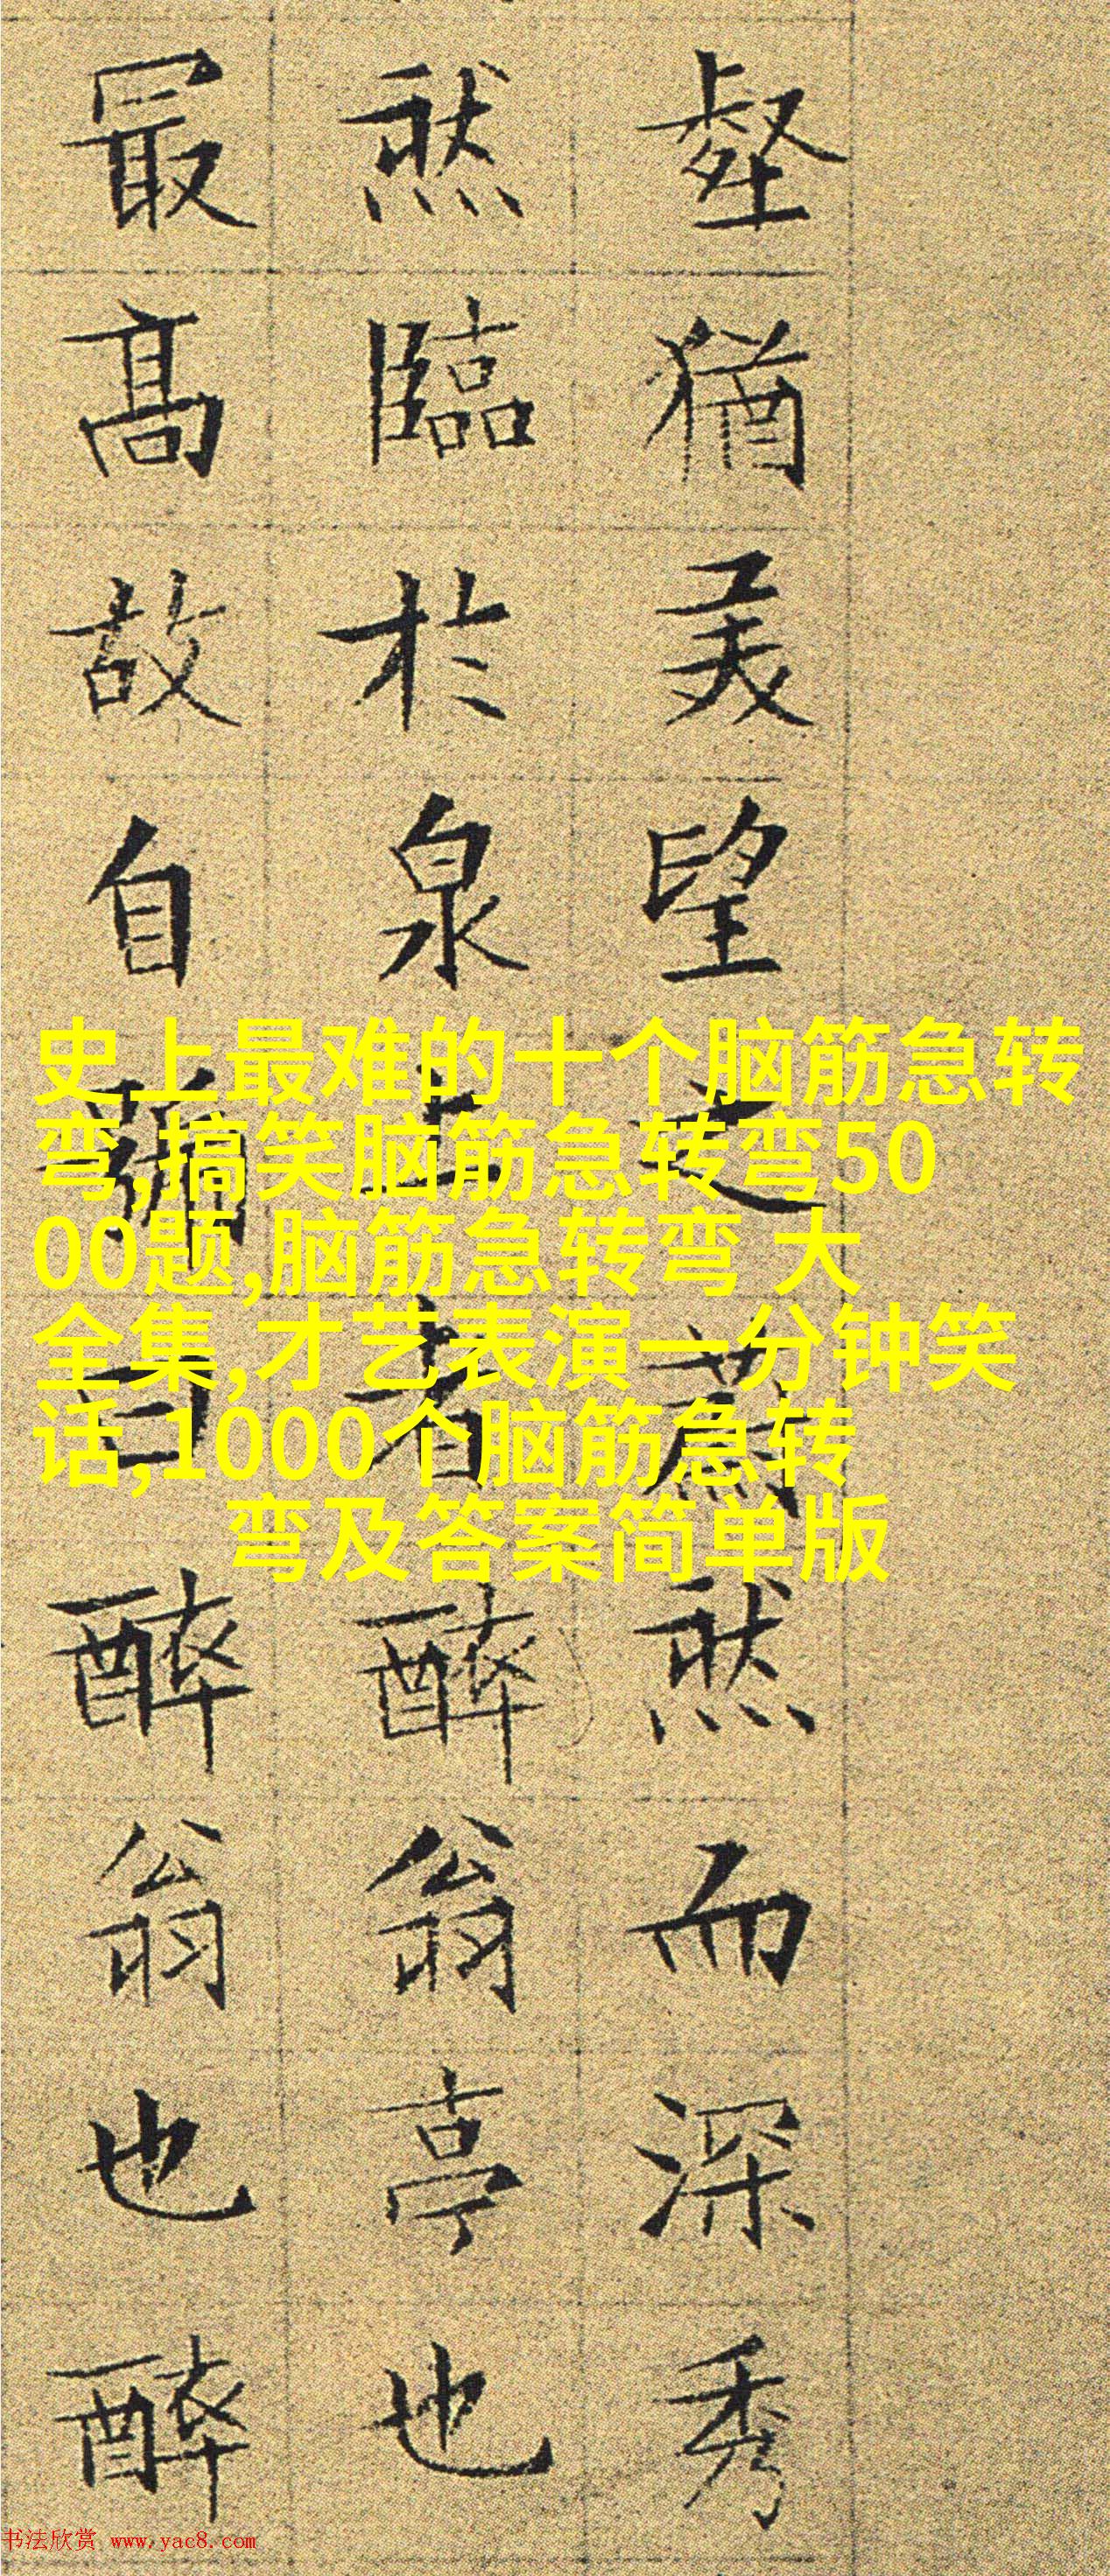 壑猶美望之蔚然而深秀
然臨於泉上者醉翁亭也
最高故自號曰醉翁也醉
史上最难的十个脑筋急转
弯,搞笑脑筋急转弯50
00题,脑筋急转弯 大
全集,才艺表演一分钟笑
话,1000个脑筋急转
弯及答案简单版
书法欣赏 www.yac8.com